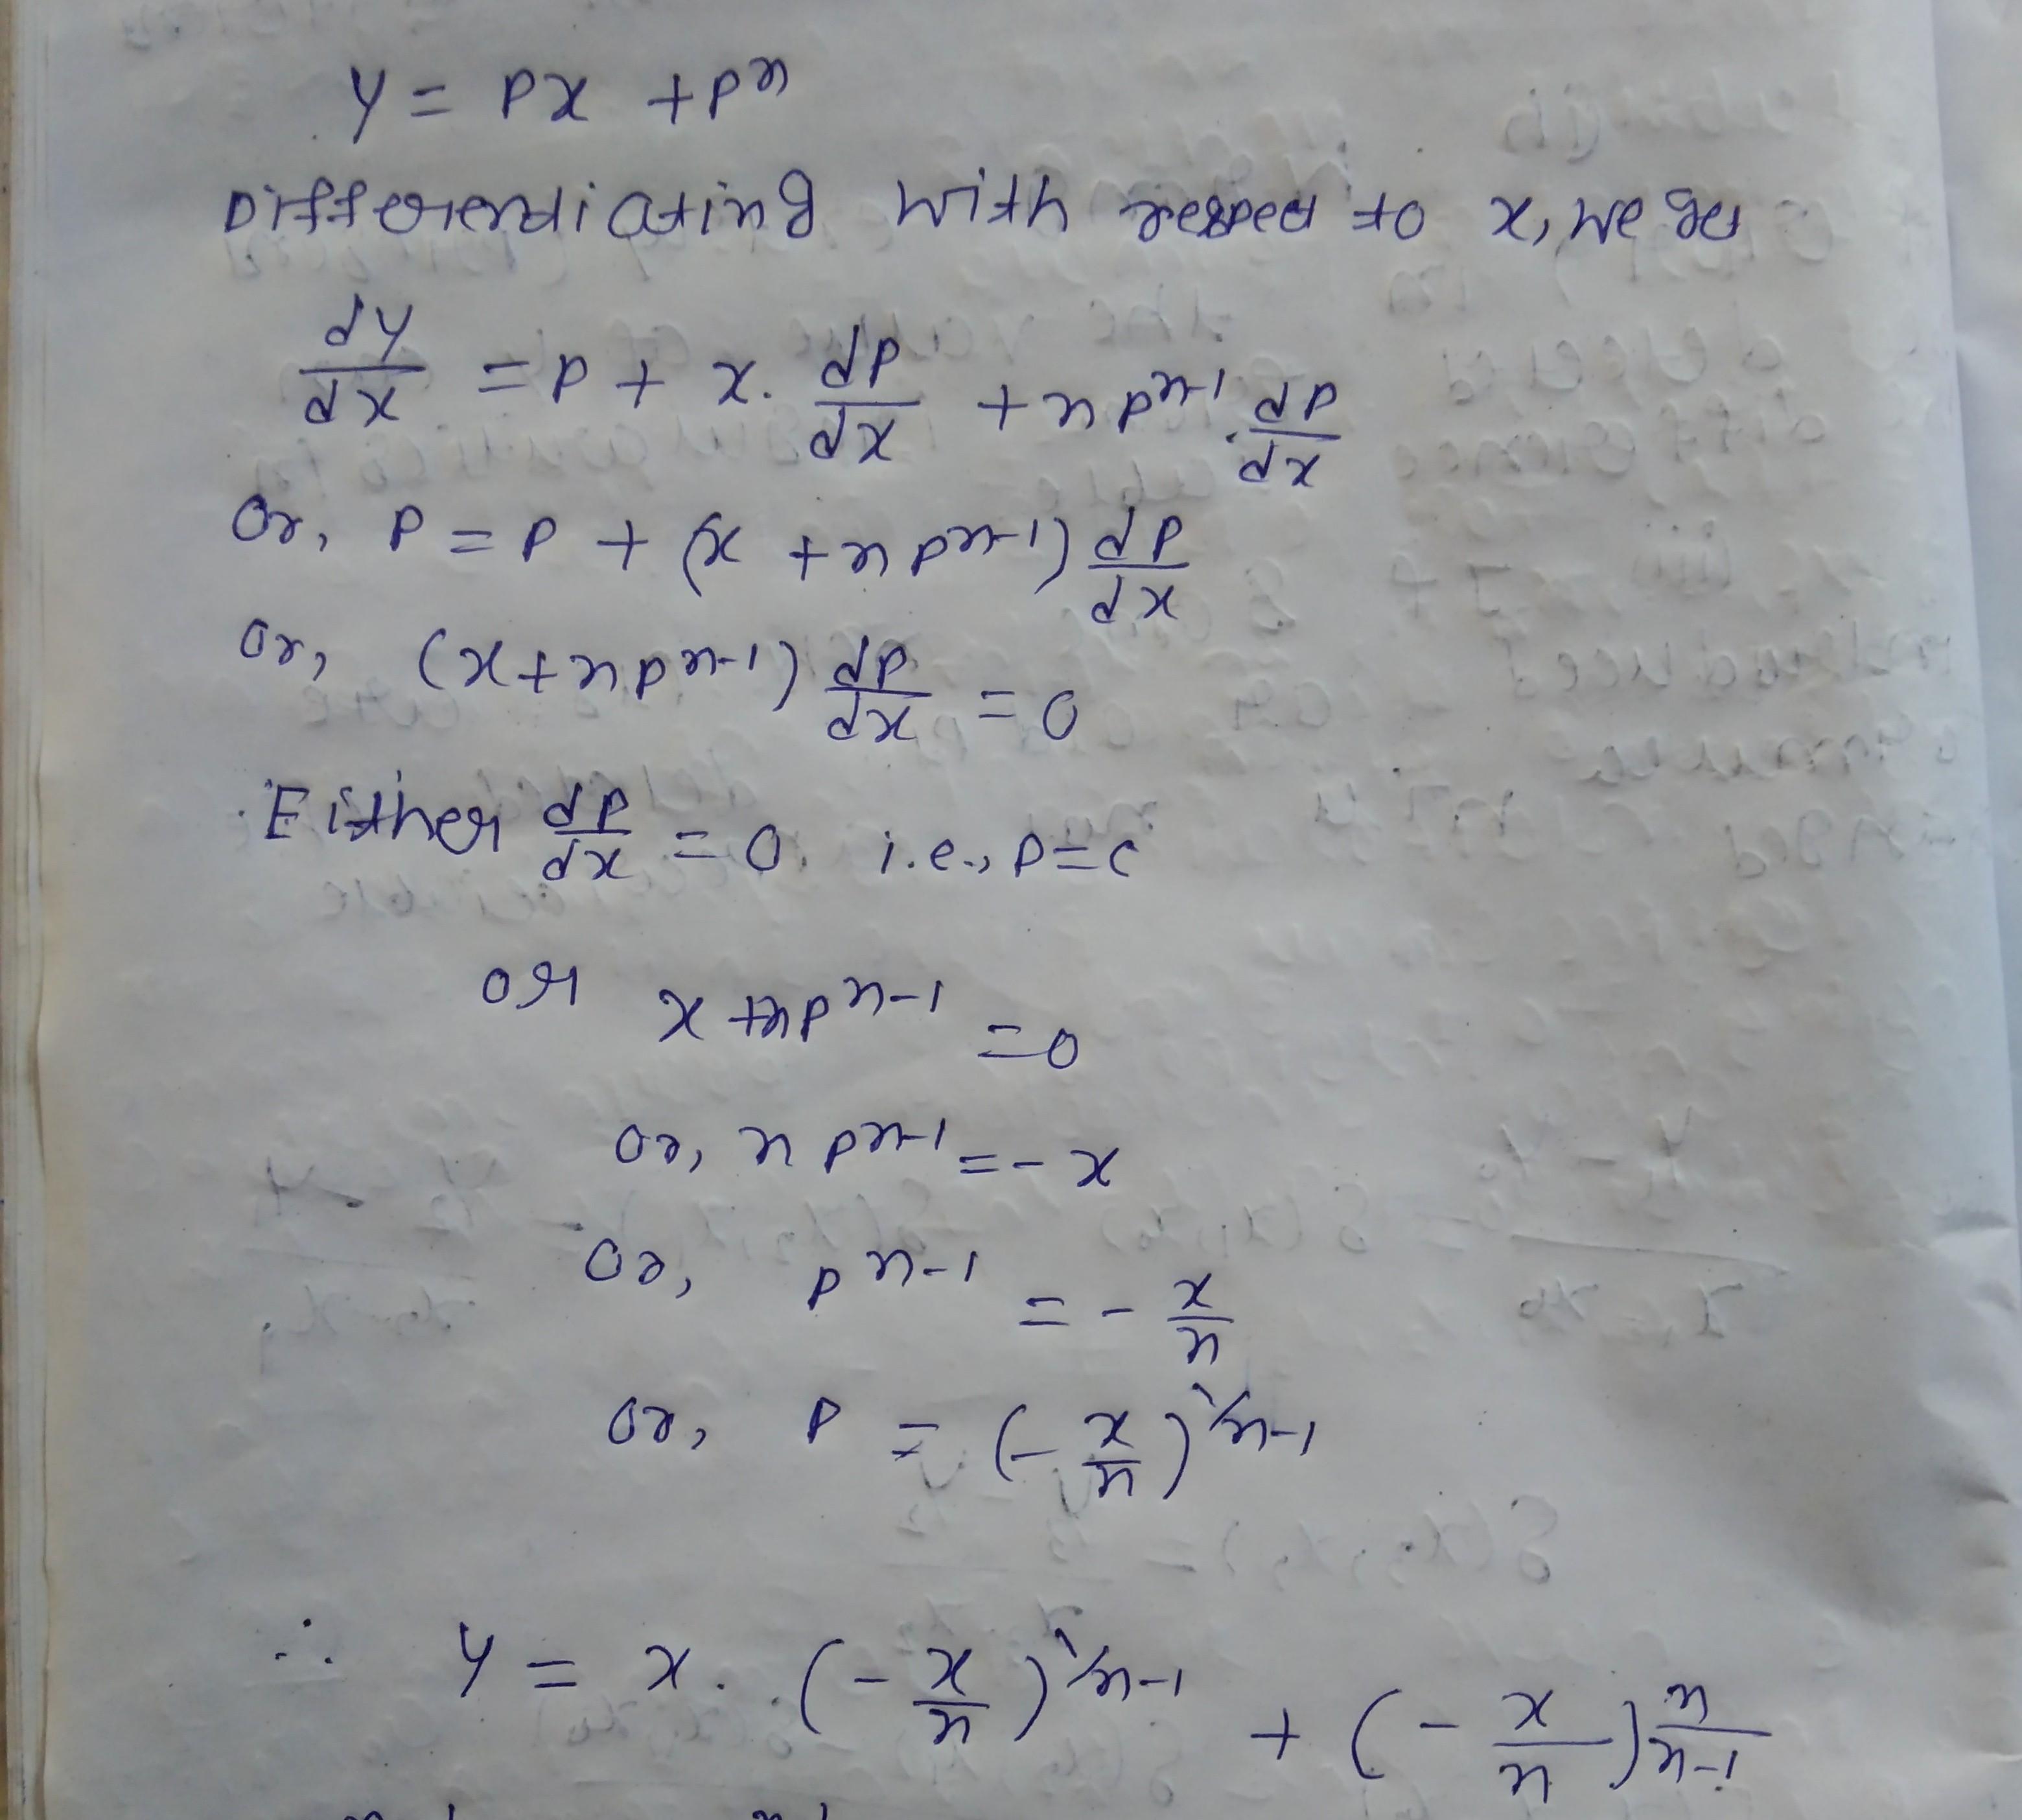 y = px + pⁿ
Differentiating with respect to x, we get
dy/dx = p + x. dp/dx + npⁿ⁻¹. dp/dx
Or, p = p + (x + npⁿ⁻¹) dp/dx
or, (x + npⁿ⁻¹) dp/dx = 0
Either dp/dx = 0 i.e., p = c
or x + npⁿ⁻¹ = 0
or, npⁿ⁻¹ = -x
Or, pⁿ⁻¹ = - x/n
or, p = (- x/n)^1/n-1
∴ y = x. (- x/n)^1/n-1 + (- x/n)^n/n-1